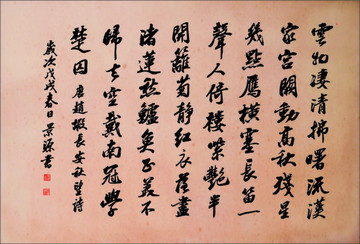 雲物淒清拂曙流漢
家宮闕動高秋殘星
幾點雁橫塞長笛一
聲人倚樓紫艷半
開籬菊靜紅衣落盡
渚蓮愁鱸魚正美不
歸去空戴南冠學
楚囚 唐趙嘏長安秋望詩
歲次戊戌春日景源書